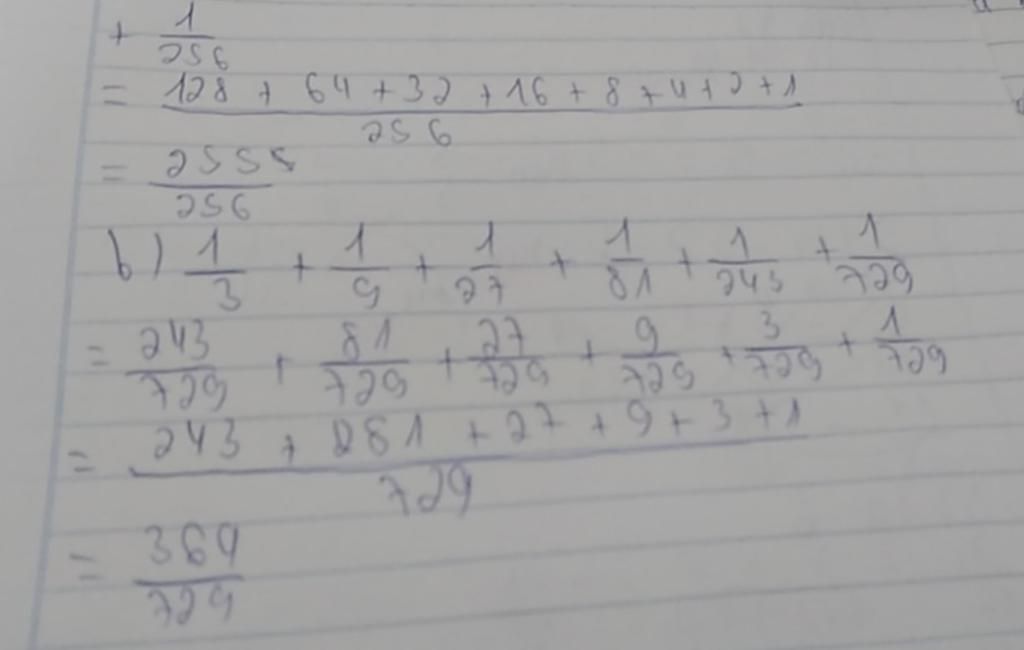 + 1/256
= (128 + 64 + 32 + 16 + 8 + 4 + 2 + 1)/256
= 2555/256
b) 1/3 + 1/9 + 1/27 + 1/81 + 1/243 + 1/729
= 243/729 + 81/729 + 27/729 + 9/729 + 3/729 + 1/729
= (243 + 281 + 27 + 9 + 3 + 1)/729
= 364/729